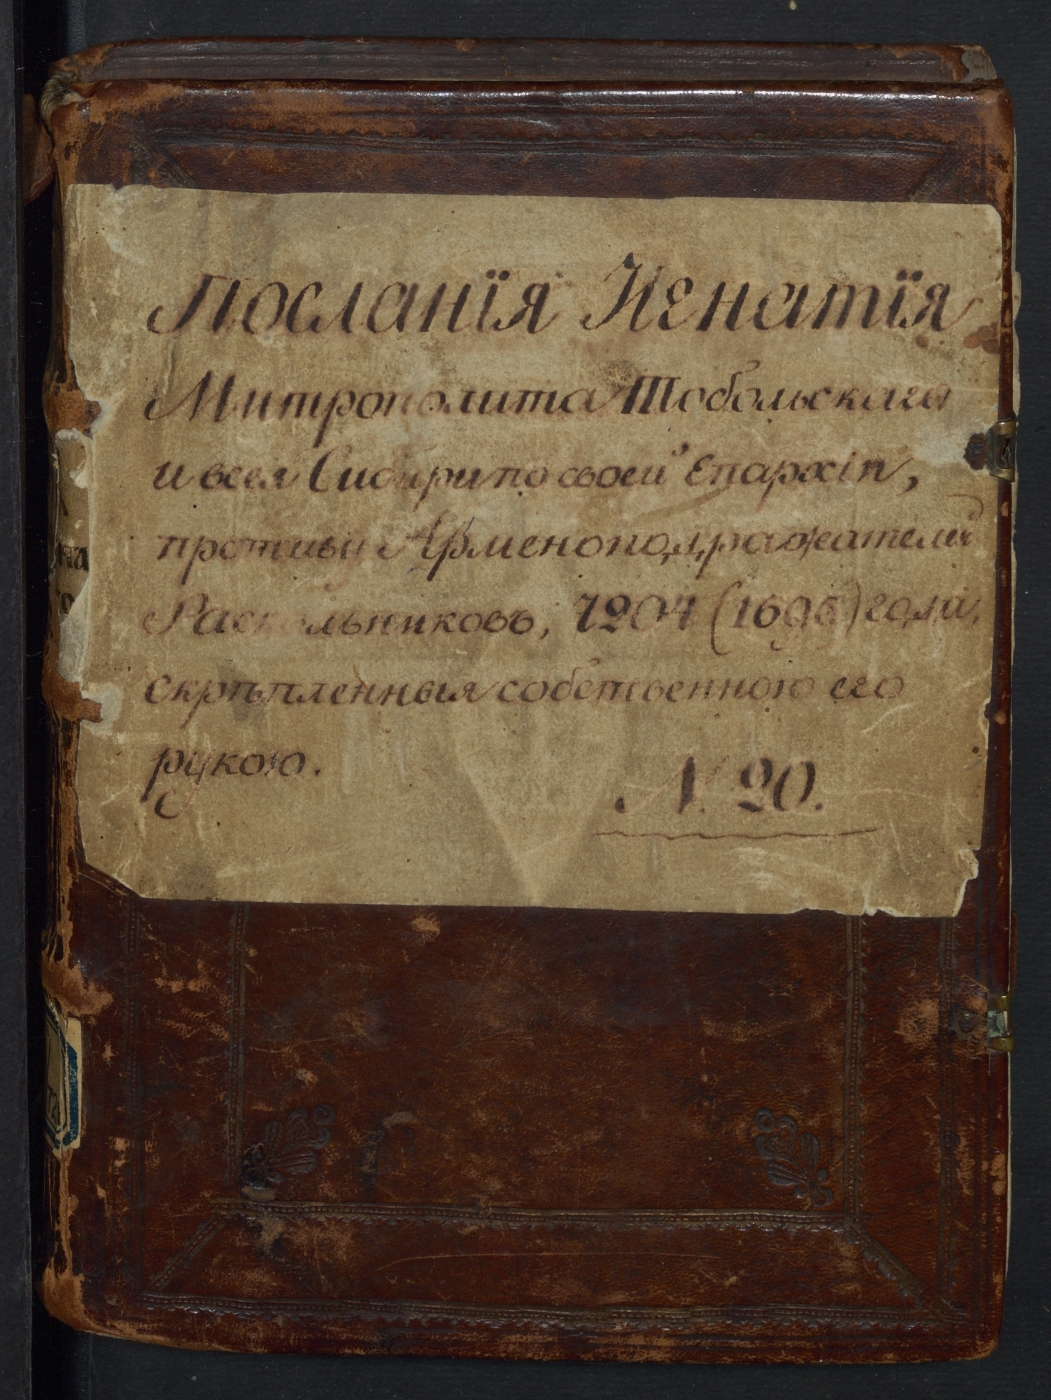 Посланїя Иенатїя
Митрополита Тобольскаго
и всея Сибири по своей Епархіи,
противу Арменоподражателей
Раскольниковъ, 7204 (1696) года,
скрѣпленныя собственною его
рукою.
№ 20.